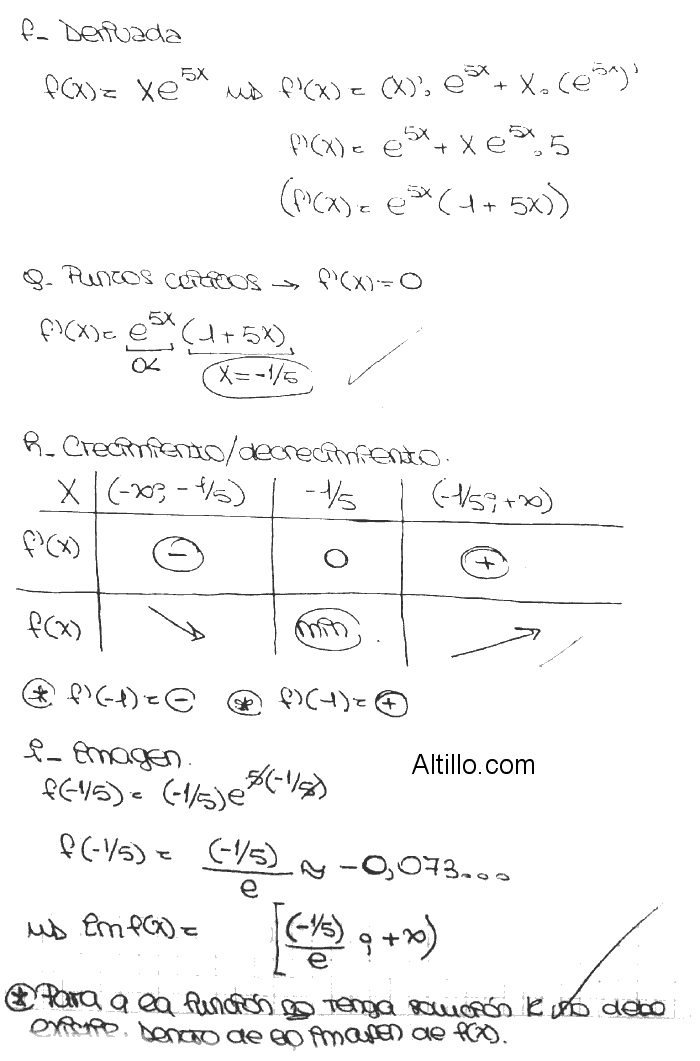 f- Derivada
f(x) = xe^5x ⇝ f'(x) = (x)'. e^5x + x. (e^5x)'
f'(x) = e^5x + x e^5x . 5
(f'(x) = e^5x (1 + 5x))
g- Puntos críticos → f'(x) = 0
f'(x) = e^5x (1 + 5x)
x = -1/5
h- Crecimiento/decrecimiento.
x (-∞; -1/5) -1/5 (-1/5; +∞)
f'(x) - 0 +
f(x) ↘ min ↗
* f'(-1) = - * f'(1) = +
i- Imagen.
Altillo.com
f(-1/5) = (-1/5) e^5(-1/5)
f(-1/5) = (-1/5)/e ≈ -0,073...
⇝ Im f(x) = [(-1/5)/e ; +∞)
* Para q la función no tenga solución K no debe
existir dentro de la imagen de f(x).